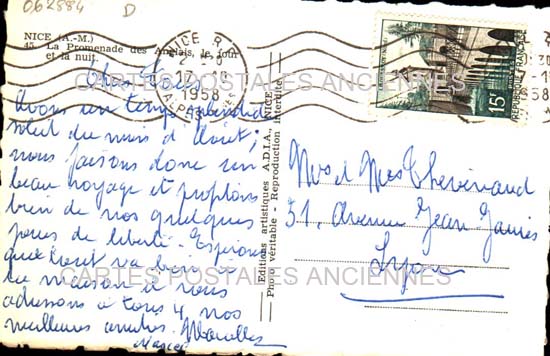 062884 D
NICE (A.-M.)
45. La Promenade des Anglais, le jour
et la nuit.
NICE R.P.
1958
15F
CARTES POSTALES ANCIENNES
Avons un temps splendide
soleil du mois d'Août;
nous faisons donc un
beau voyage et profitons
bien de nos quelques
jours de liberté. Espérons
que tout va bien à
la maison et nous
adressons à tous 4 nos
meilleures amitiés.
Editions artistiques A.D.I.A., NICE
Photo véritable - Reproduction interdite
Mr et Mes Thevenaud
31, Avenue Jean Jaurès
Lyon
CARTES POSTALES ANCIENNES